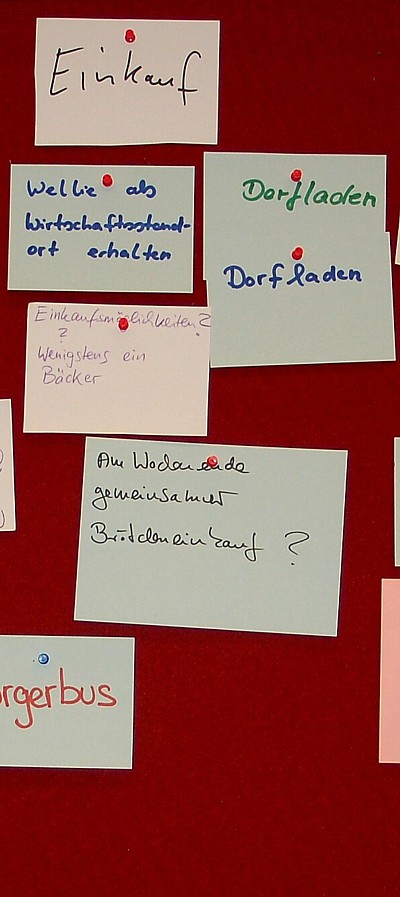 Einkauf
Wellie als
Wirtschaftsstand-
ort erhalten
Dorfladen
Dorfladen
Einkaufsmöglichkeiten?
?
Wenigstens ein
Bäcker
Am Wochenende
gemeinsamer
Brötcheneinkauf ?
rgerbus